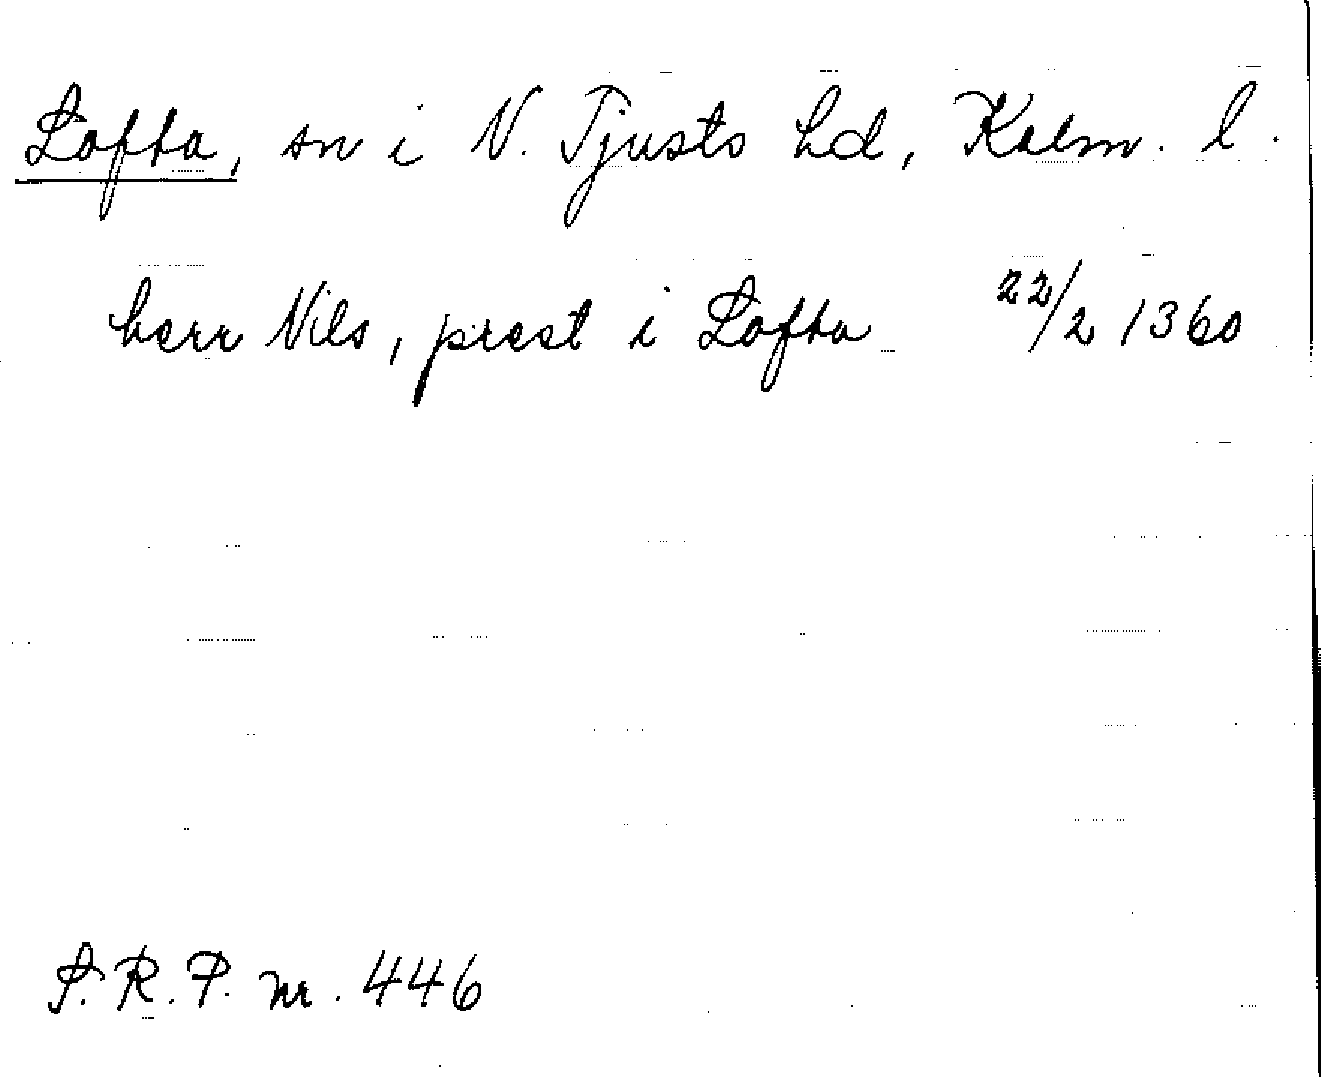 Lofta, sn i N. Tjusts hd, Kalm. l.
herr Nils, præst i Lofta 22/2 1360
S.R.P. nr. 446